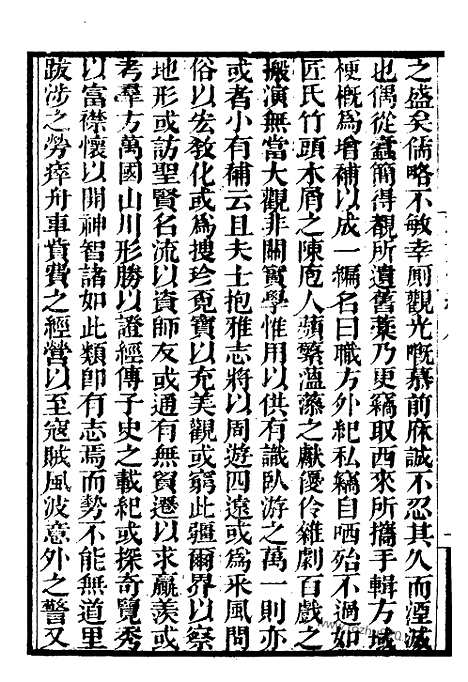 之盛矣儒略不敏幸厠觀光慨慕前庥誠不忍其久而湮滅
也偶從蠹簡得覩所遺舊藁乃更竊取西來所攜手輯方域
梗概爲增補以成一編名曰職方外紀私竊自哂殆不過如
匠氏竹頭木屑之陳庖人蘋蘩薀藻之獻優伶雜劇百戲之
搬演無當大觀非關實學惟用以供有識臥游之萬一則亦
或者小有補云且夫士抱雅志將以周遊四遠或爲采風問
俗以宏敎化或爲搜珍覓寶以充美觀或窮此疆爾界以察
地形或訪聖賢名流以資師友或通有無貿遷以求贏羨或
考羣方萬國山川形勝以證經傳子史之載紀或探奇覽秀
以富襟懷以開神智諸如此類卽有志焉而勢不能無道里
跋涉之勞瘁舟車賫費之經營以至寇賊風波意外之警又